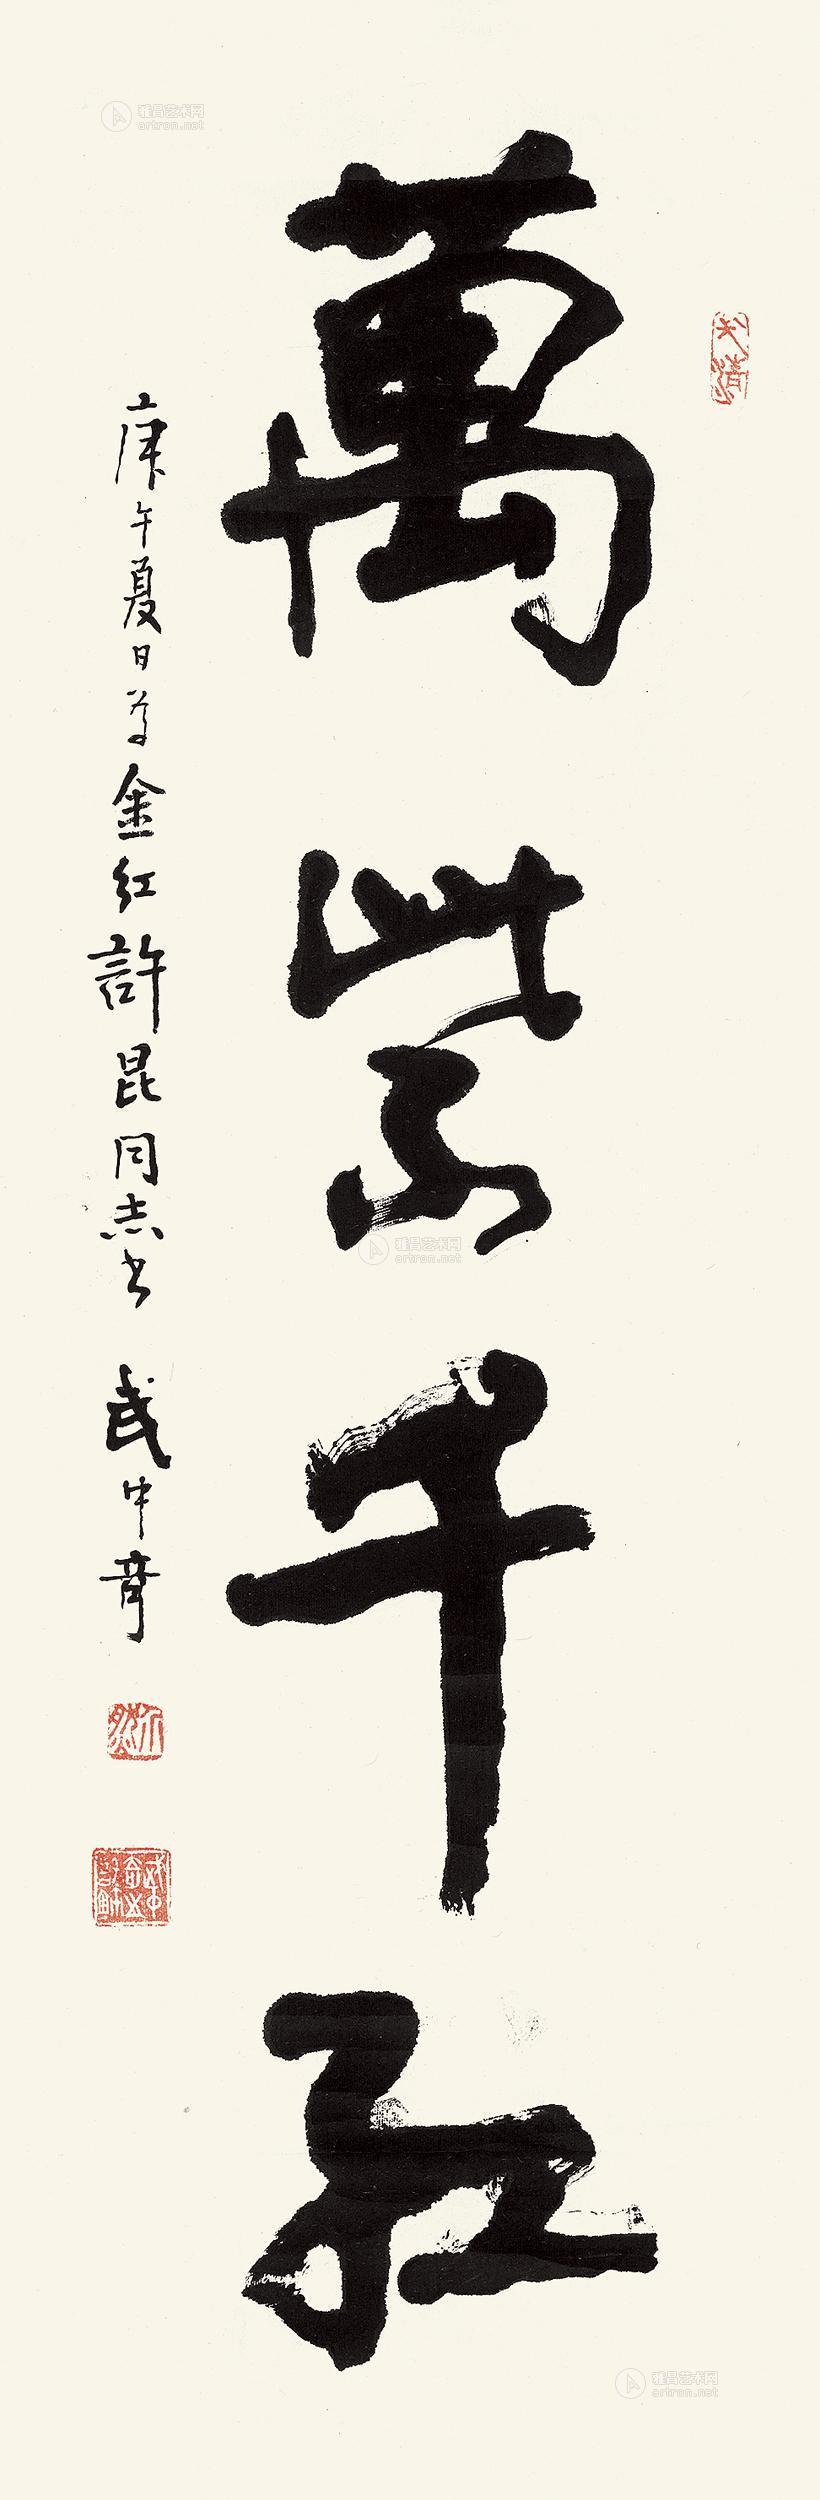 萬紫千紅
庚午夏日為金紅許昆同志書 武中奇
雅昌艺术网
artron.net
雅昌艺术网
artron.net
雅昌艺术网
artron.net